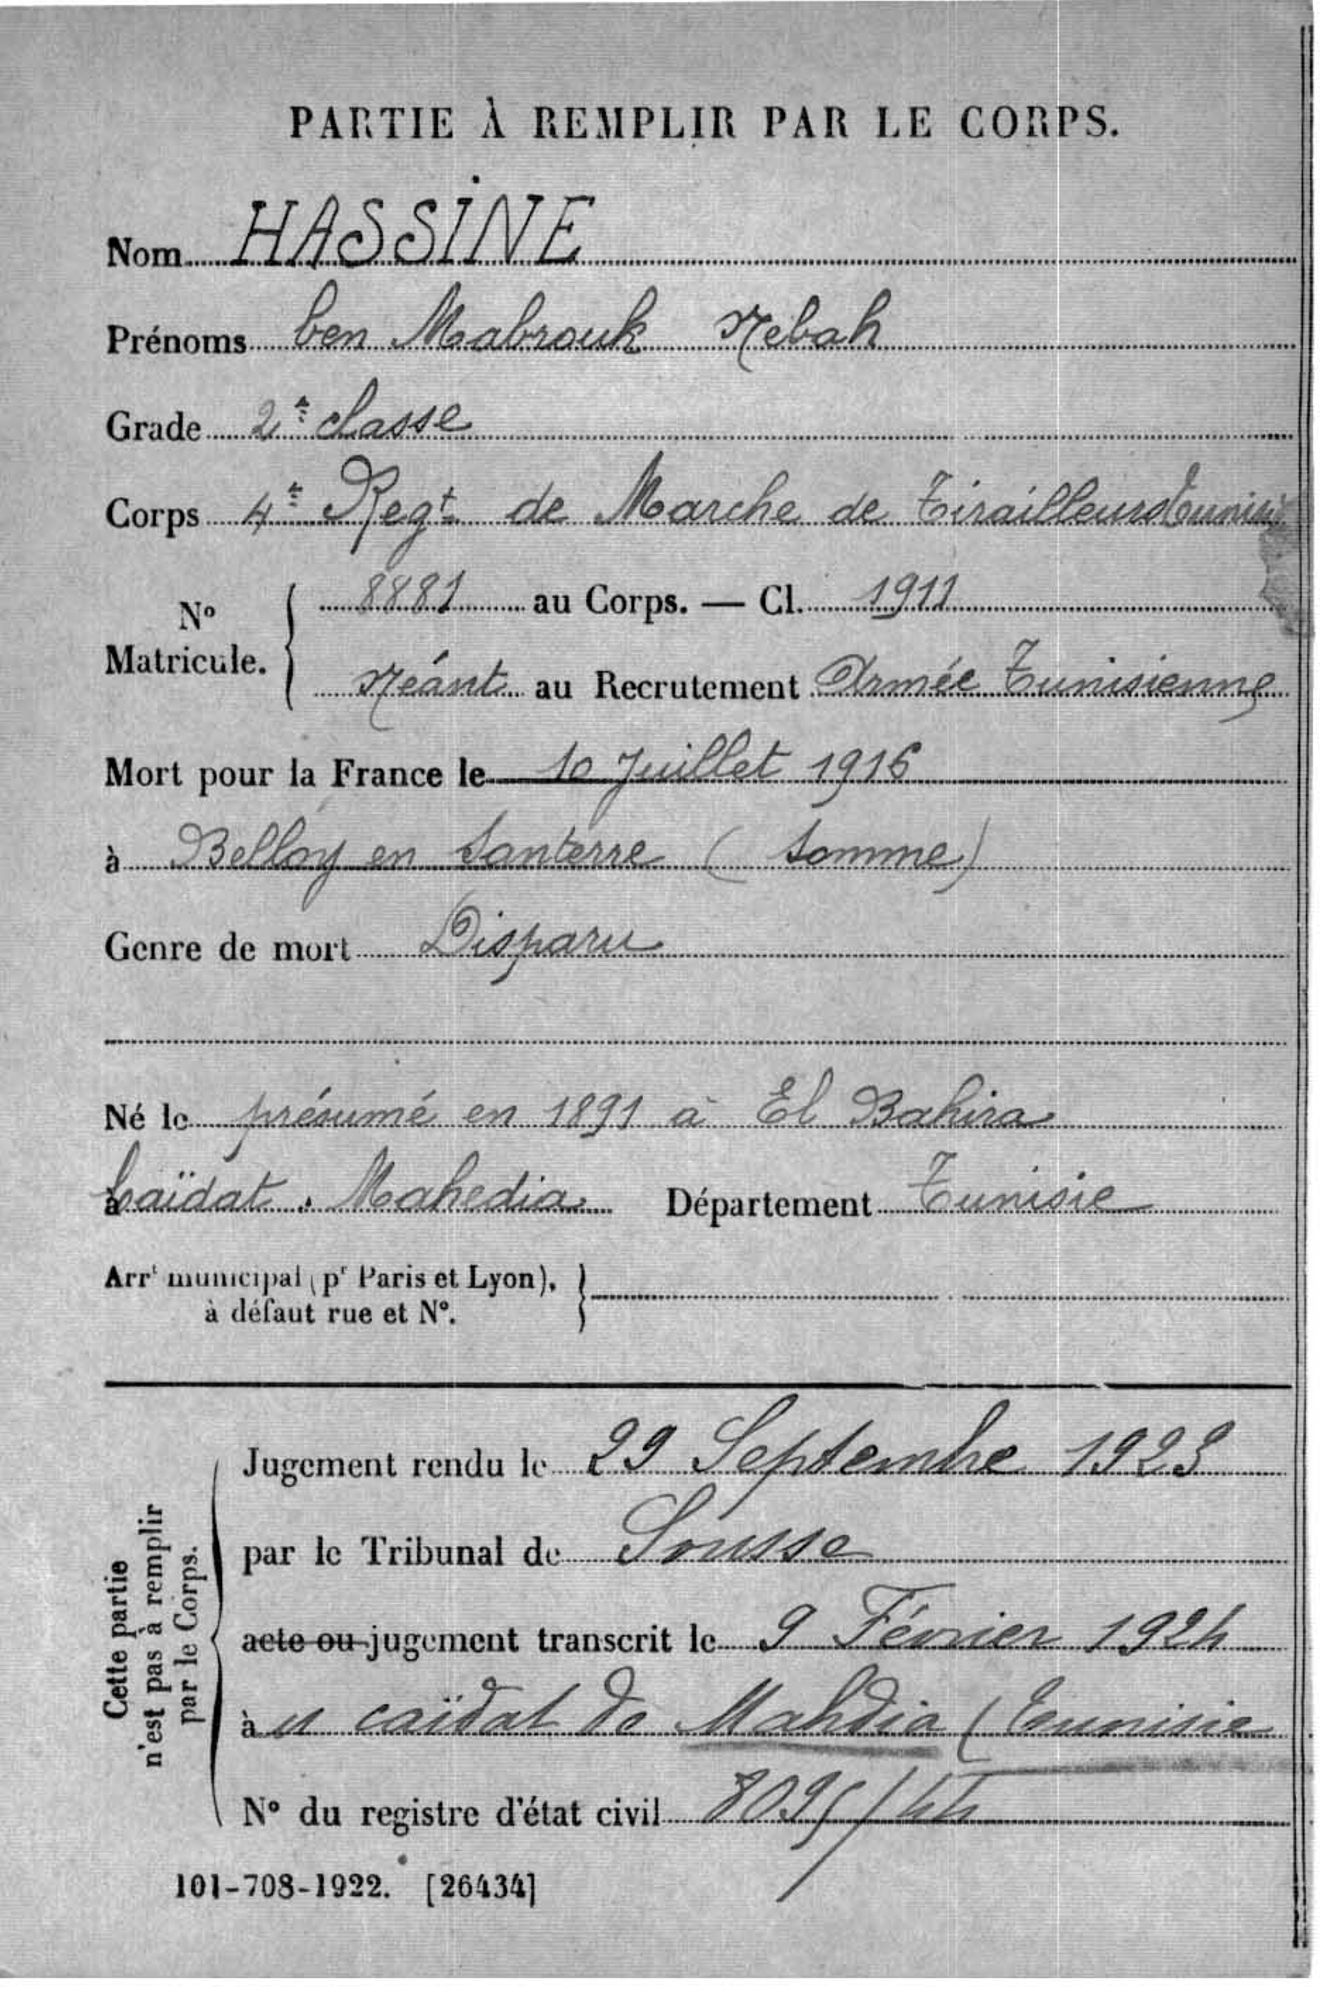 PARTIE À REMPLIR PAR LE CORPS.
Nom HASSINE
Prénoms ben Mabrouk Nebah
Grade 2e classe
Corps 4e Regt de Marche de Tirailleurs
N° Matricule. 8881 au Corps. — Cl. 1911
Néant au Recrutement Armée Tunisienne
Mort pour la France le 10 Juillet 1916
à Belloy en Santerre (Somme)
Genre de mort Disparu
Né le présumé en 1891 à El Bahira
à Caïdat. Mahedia Département Tunisie
Arrt municipal (pr Paris et Lyon),
à défaut rue et N°.
Cette partie
n'est pas à remplir
par le Corps.
Jugement rendu le 29 Septembre 1923
par le Tribunal de Sousse
acte ou jugement transcrit le 9 Février 1924
à caïdat de Mahdia (Tunisie
N° du registre d'état civil
101-708-1922. [26434]